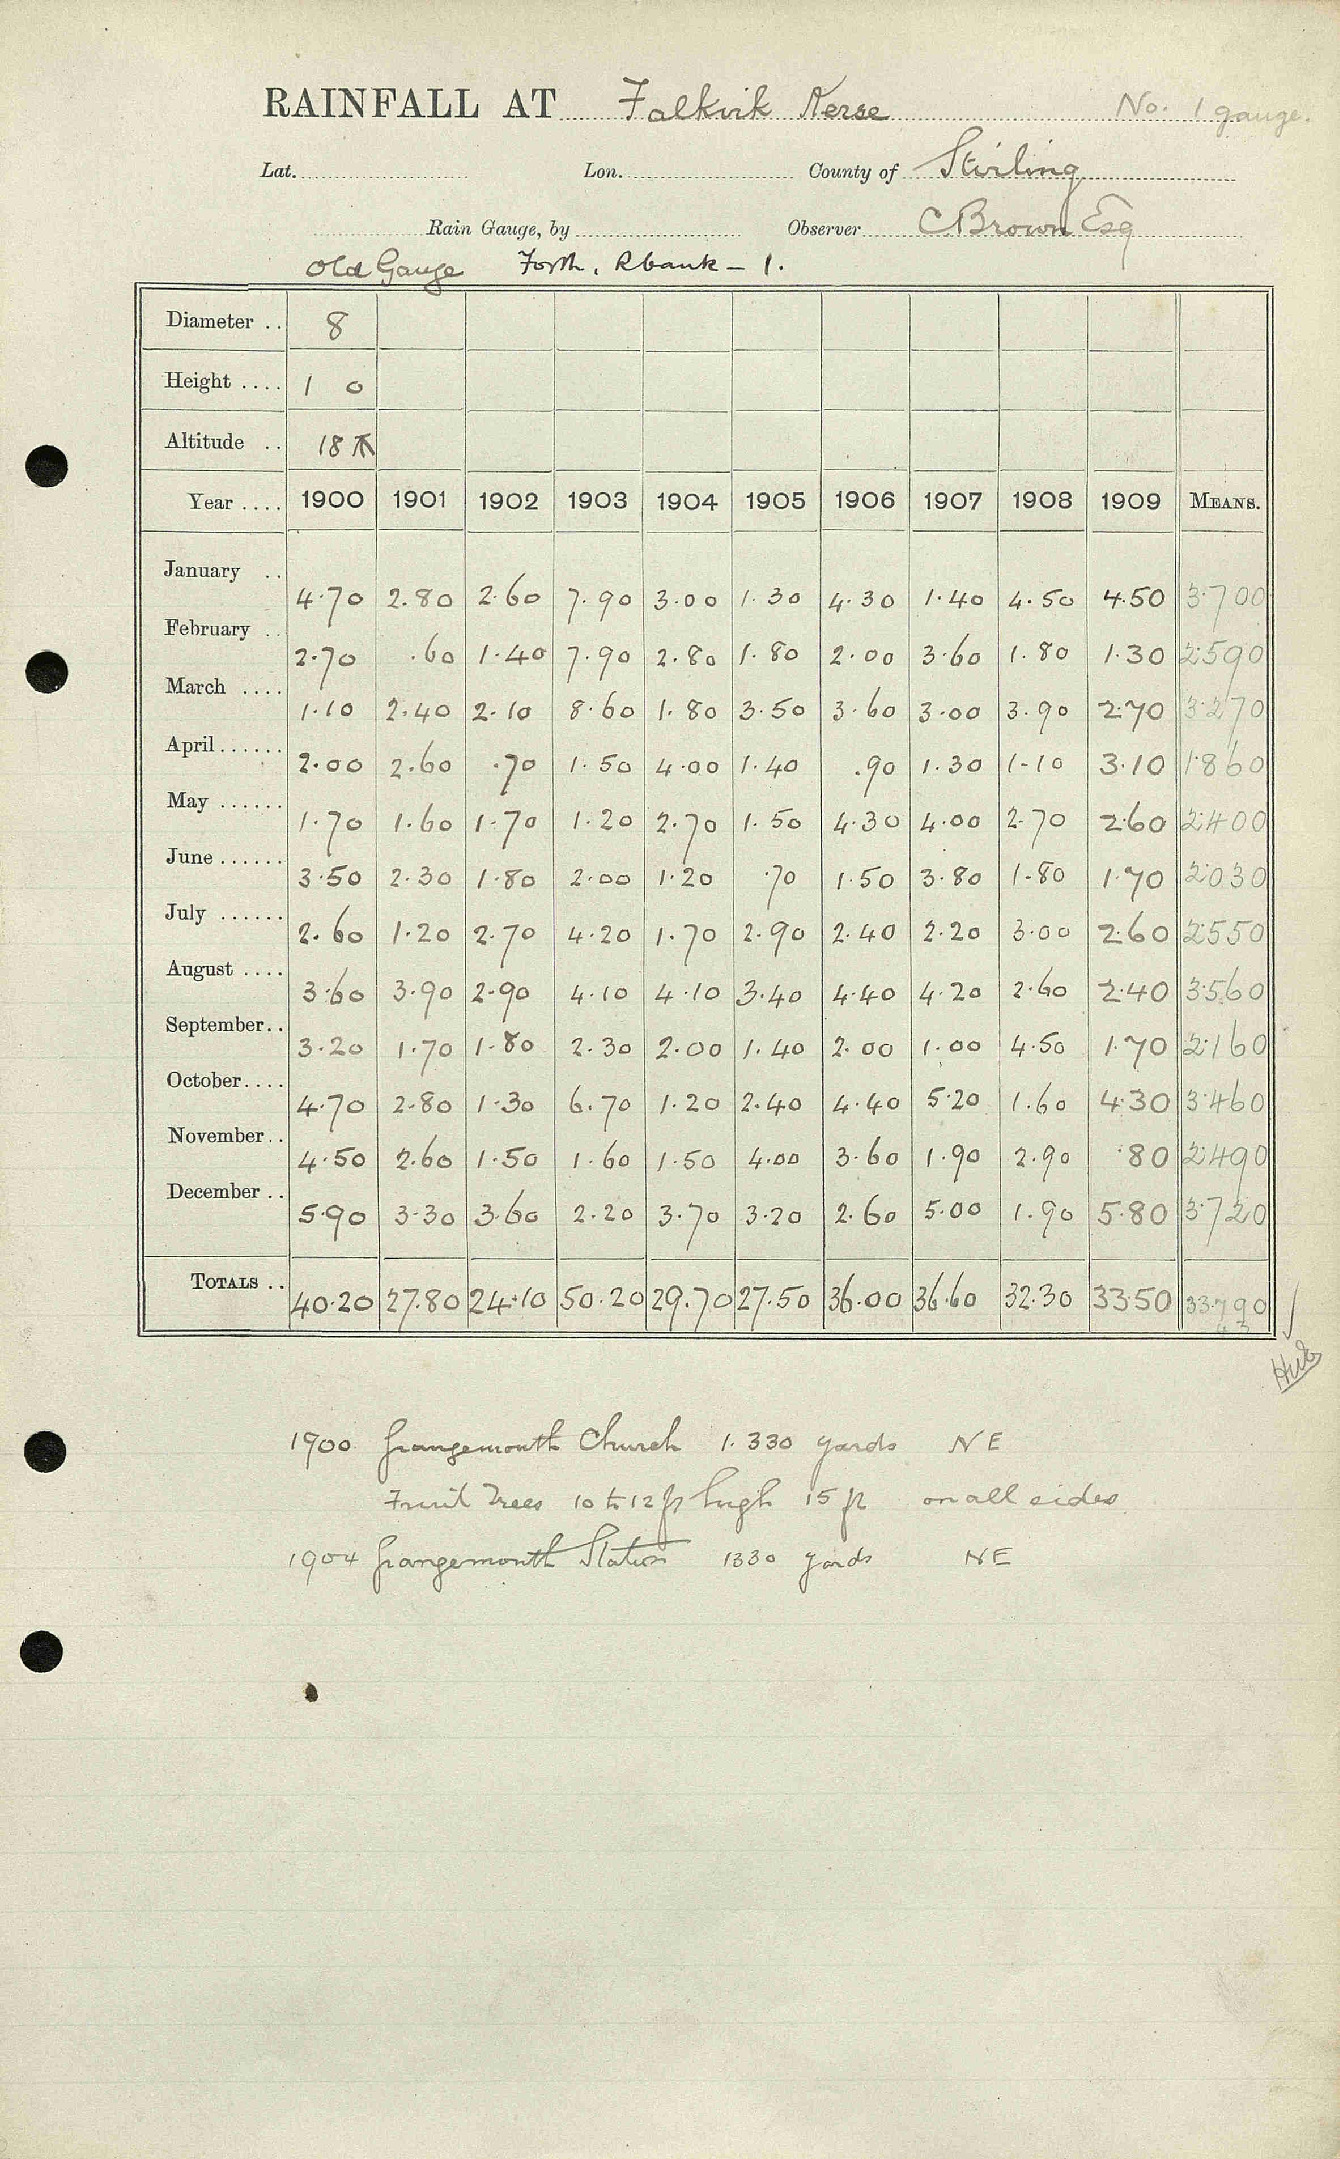 RAINFALL AT Falkirk Kerse No. 1 gauge.
Lat. Lon. County of Stirling
Rain Gauge, by Observer C Brown Esq
Old Gauge Forth. Rbank - 1.
Diameter .. 8
Height .... 1 0
Altitude .. 18
Year .... 1900 1901 1902 1903 1904 1905 1906 1907 1908 1909 MEANS.
January .. 4.70 2.80 2.60 7.90 3.00 1.30 4.30 1.40 4.50 4.50 3.700
February .. 2.70 .60 1.40 7.90 2.80 1.80 2.00 3.60 1.80 1.30 2.590
March .... 1.10 2.40 2.10 8.60 1.80 3.50 3.60 3.00 3.90 2.70 3.270
April ...... 2.00 2.60 .70 1.50 4.00 1.40 .90 1.30 1.10 3.10 1.860
May ...... 1.70 1.60 1.70 1.20 2.70 1.50 4.30 4.00 2.70 2.60 2.400
June ...... 3.50 2.30 1.80 2.00 1.20 .70 1.50 3.80 1.80 1.70 2.030
July ...... 2.60 1.20 2.70 4.20 1.70 2.90 2.40 2.20 3.00 2.60 2.550
August .... 3.60 3.90 2.90 4.10 4.10 3.40 4.40 4.20 2.60 2.40 3.560
September.. 3.20 1.70 1.80 2.30 2.00 1.40 2.00 1.00 4.50 1.70 2.160
October.... 4.70 2.80 1.30 6.70 1.20 2.40 4.40 5.20 1.60 4.30 3.460
November.. 4.50 2.60 1.50 1.60 1.50 4.00 3.60 1.90 2.90 .80 2.490
December .. 5.90 3.30 3.60 2.20 3.70 3.20 2.60 5.00 1.90 5.80 3.720
TOTALS .. 40.20 27.80 24.10 50.20 29.70 27.50 36.00 36.60 32.30 33.50 33.790
1900 Grangemouth Church 1.330 yards NE
Fruit Trees 10 to 12 ft high 15 ft on all sides
1904 Grangemouth Station 1330 yards NE